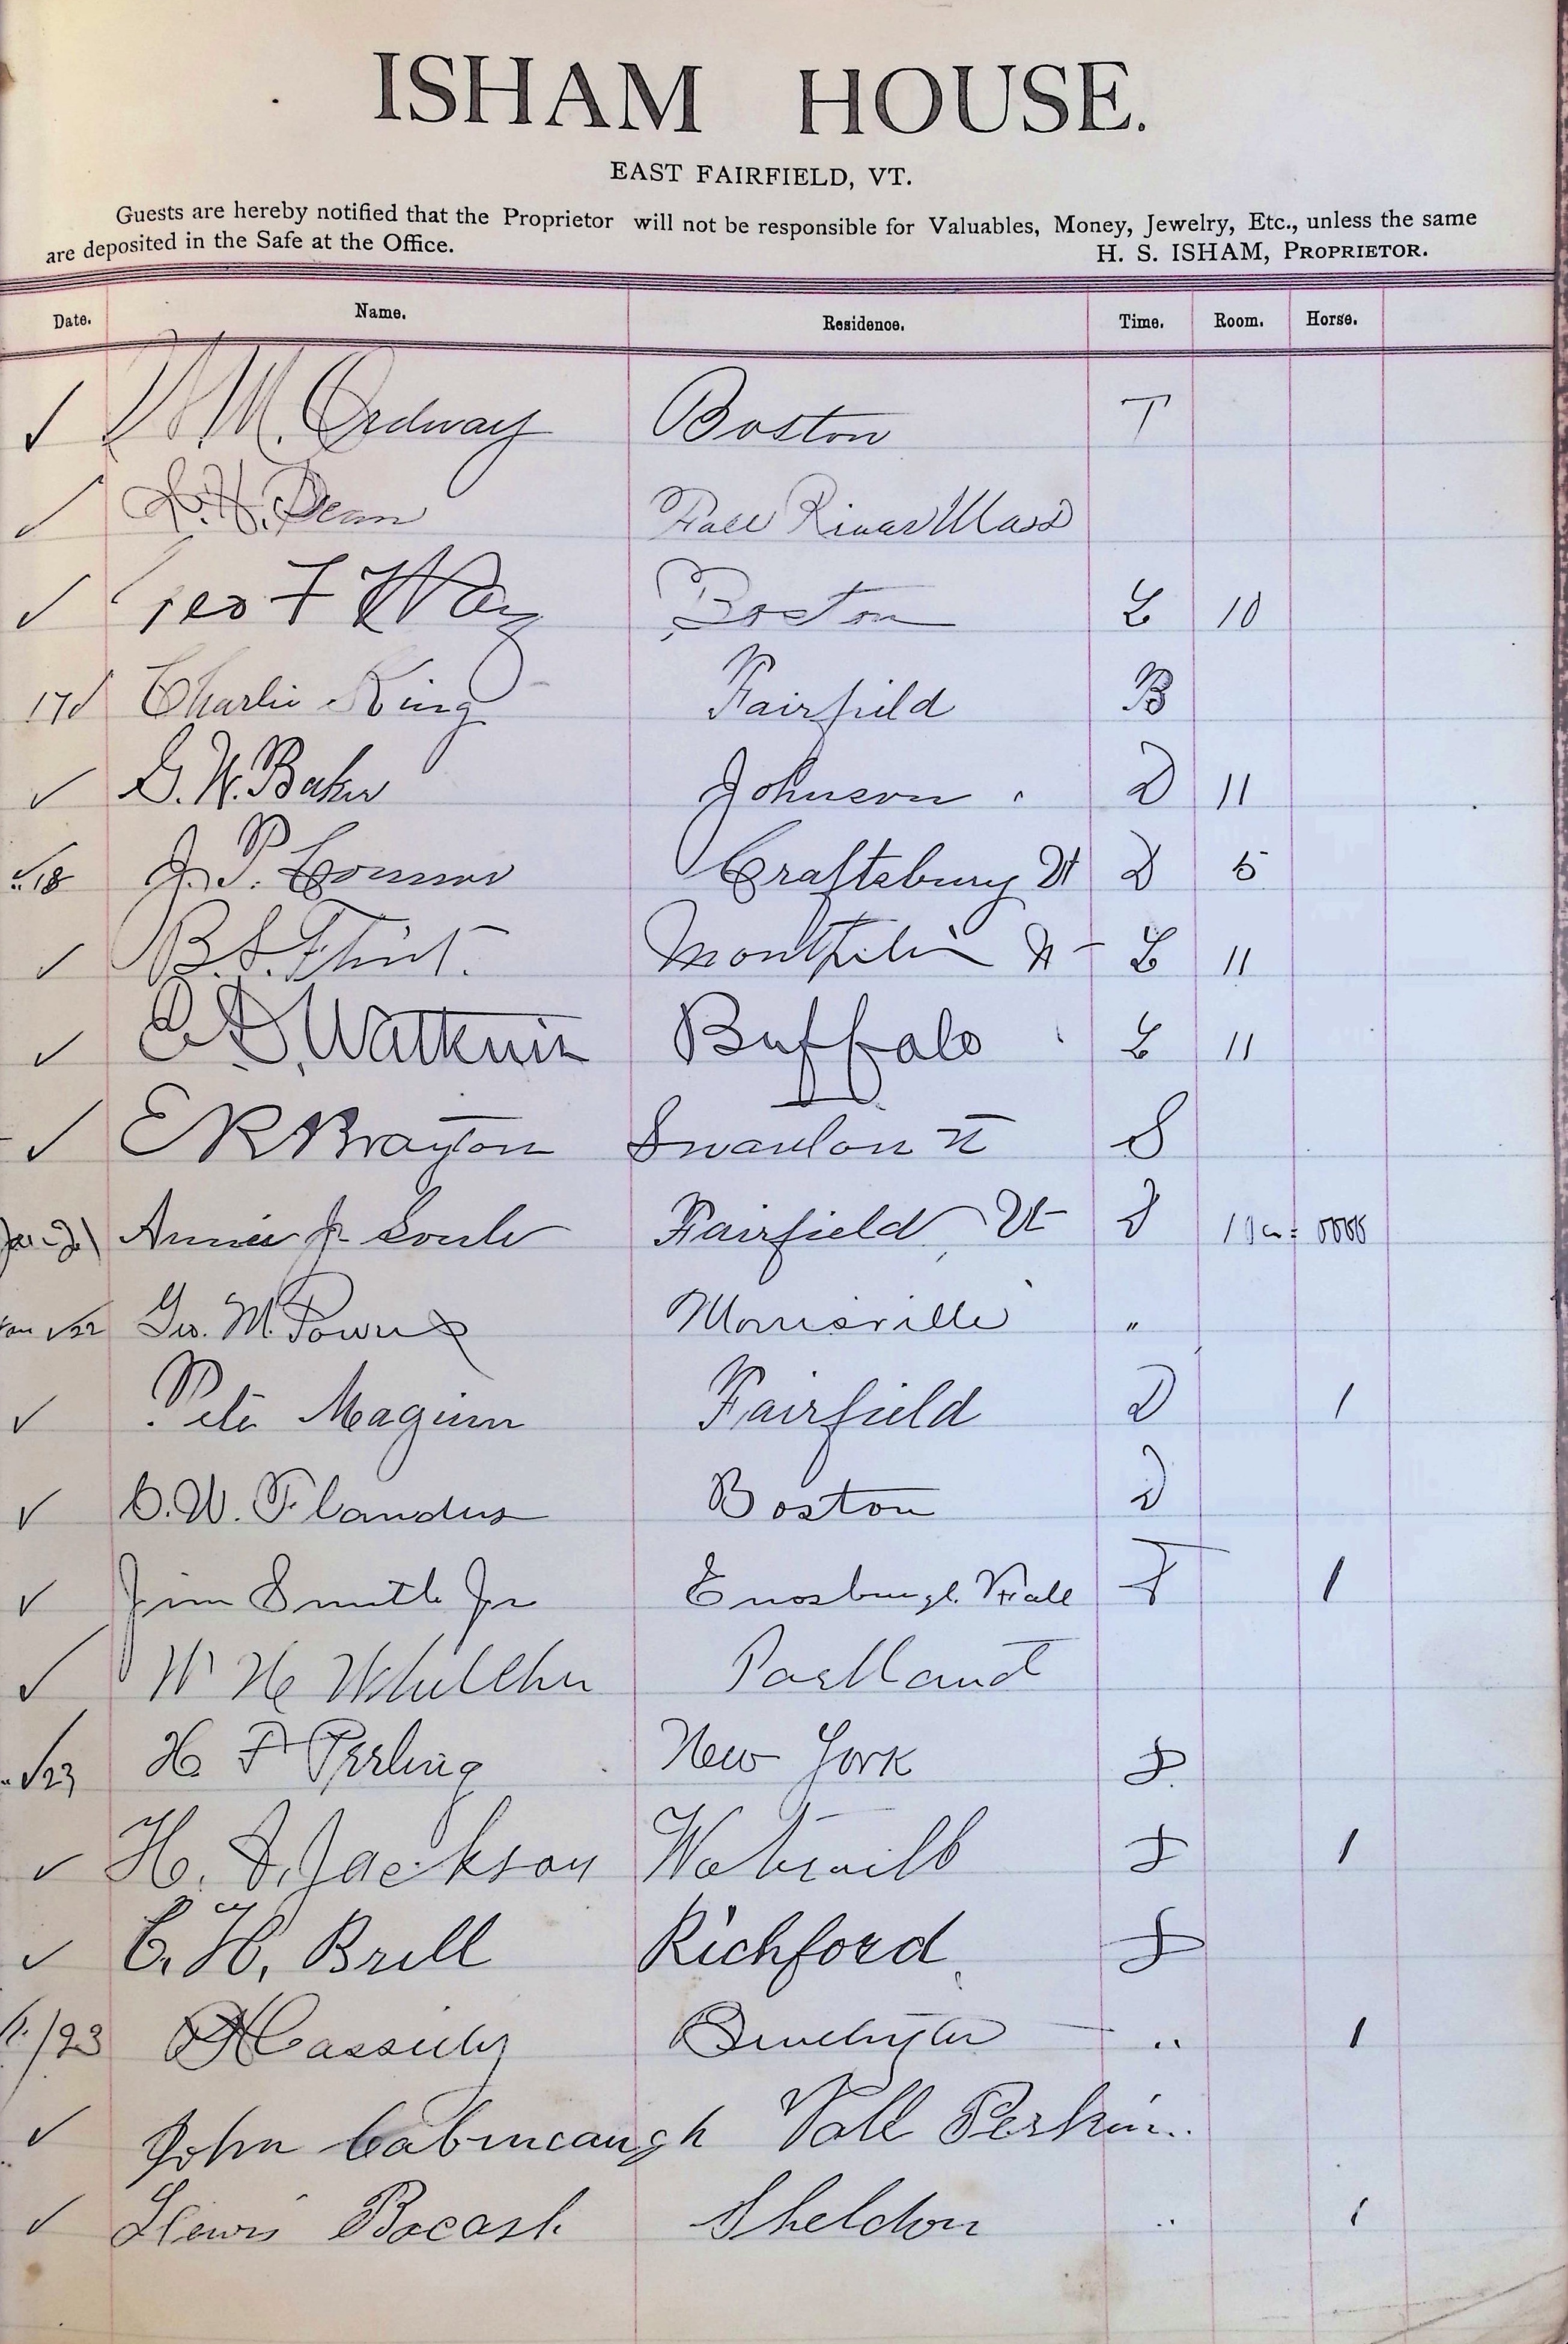 ISHAM HOUSE.
EAST FAIRFIELD, VT.
Guests are hereby notified that the Proprietor will not be responsible for Valuables, Money, Jewelry, Etc., unless the same
are deposited in the Safe at the Office. H. S. ISHAM, PROPRIETOR.
Date. Name. Residence. Time. Room. Horse.
✓ M. Ordway Boston T
✓ H. Dean Fall River Mass
✓ Geo F Way Boston L 10
17 ✓ Charlie King Fairfield B
✓ G. W. Baker Johnson D 11
" ✓ 18 J. P. Connor Craftsbury Vt D 5
✓ B. S. Flint. Montpelier Vt L 11
✓ Watkins Buffalo L 11
✓ E R Brayton Swanton Vt S
Jan 21 Annie J. Soule Fairfield, Vt
Jan ✓ 22 Geo. M. Powers Morrisville "
✓ Pete Maginn Fairfield D 1
✓ C. W. Flanders Boston D
✓ Jim Smith Jr Enosburgh Fall 1
✓ W H Portland
" ✓ 23 H. F Perling New York
✓ H. A. Jackson Waterville 1
✓ C. H. Brill Richford
/23 Cassidy Burlington " 1
✓ John
✓ Lewis Bocash Sheldon " 1